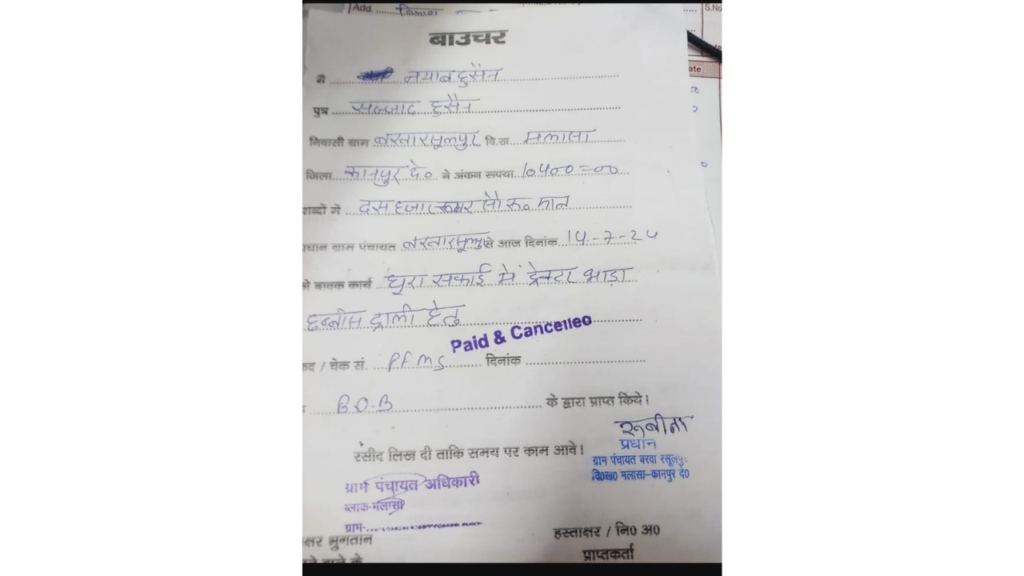 Add ...... विमला
S.No
बाउचर
ate
मै ...... नयाब हुसैन
पुत्र ...... सज्जाद हुसैन
निवासी ग्राम बरवारसूलपुर वि.ख. मलासा
जिला ...... कानपुर दे० ने अंकन रुपया 10400=00
शब्दों में ...... दस हजार चार सौ रू० मात्र
प्रधान ग्राम पंचायत बरवारसूलपुर से आज दिनांक 14-7-24
के बावत कार्य घूरा सफाई में ट्रेक्टर भाड़ा
छब्बीस ट्राली हेतु
Paid & Cancelled
/ चेक सं. PFMS दिनांक
B.O.B के द्वारा प्राप्त किये।
रूबीना
रसीद लिख दी ताकि समय पर काम आवे।
प्रधान
ग्राम पंचायत बरवा रसूलपुर
वि०ख० मलासा-कानपुर दे०
ग्राम पंचायत अधिकारी
ब्लाक-मलासा
ग्राम-
हस्ताक्षर / नि0 अ0
भुगतान
प्राप्तकर्ता